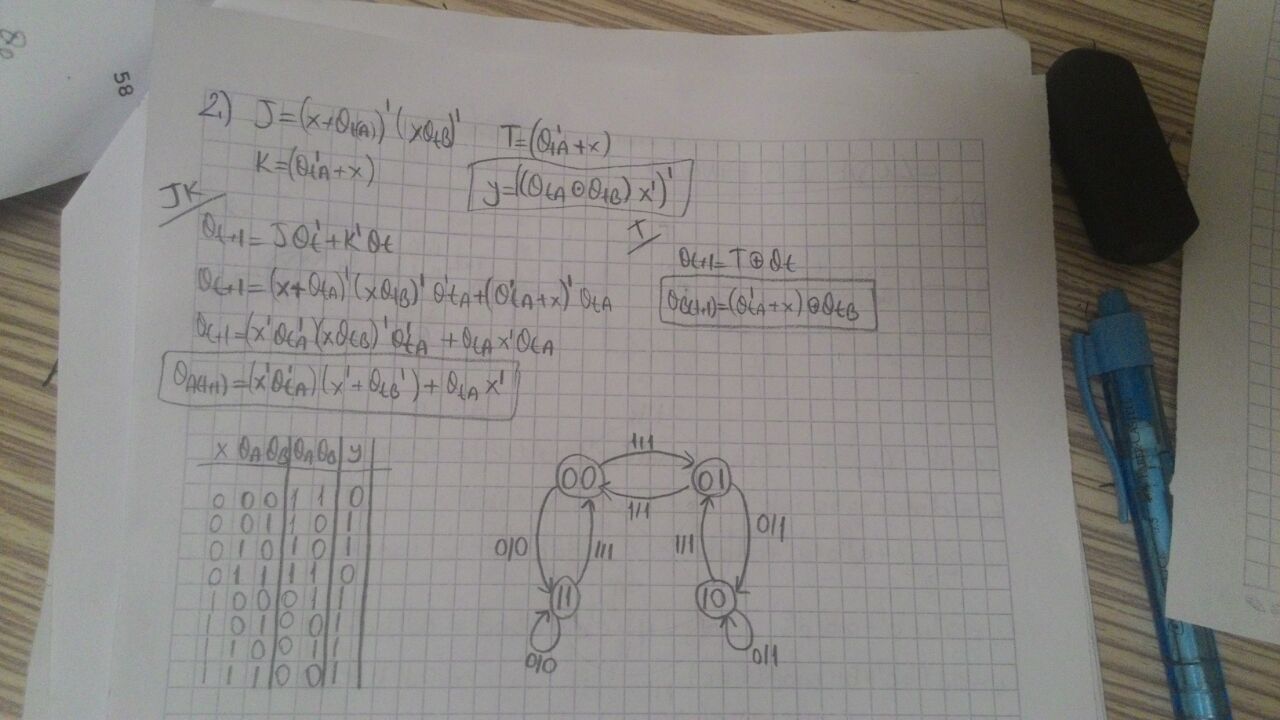 58
2.) J=(x+Qt(A))'(xQtB)' T=(Q'tA+x)
K=(Q'tA+x) y=((QtA⊙QtB)x')'
JK/ T/
Qt+1=JQt'+K'Qt Qt+1=T⊕Qt
Qt+1=(x+QtA)'(xQtB)'Q'tA+(Q'tA+x)'QtA QB(t+1)=(Q'tA+x)⊕QtB
Qt+1=(x'Qt'A)(xQtB)'Q'tA+QtAx'QtA
QA(t+1)=(x'Qt'A)(x'+QtB')+QtAx'
x QA QB QA QB y
0 0 0 1 1 0
0 0 1 1 0 1
0 1 0 1 0 1
0 1 1 1 1 0
1 0 0 0 1 1
1 0 1 0 0 1
1 1 0 0 1 1
1 1 1 0 0 1
1/1
00 01
1/1
0/0 1/1 1/1 0/1
11 10
0/0 0/1